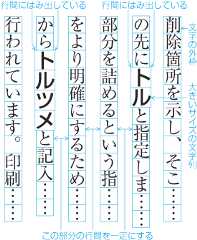 行間にはみ出している
行間にはみ出している
削除箇所を示し、そこ……
の先にトルと指定しま……
部分を詰めるという指……
をより明確にするため……
からトルツメと記入……
行われています。印刷……
文字の外枠
大きいサイズの文字列
この部分の行間を一定にする